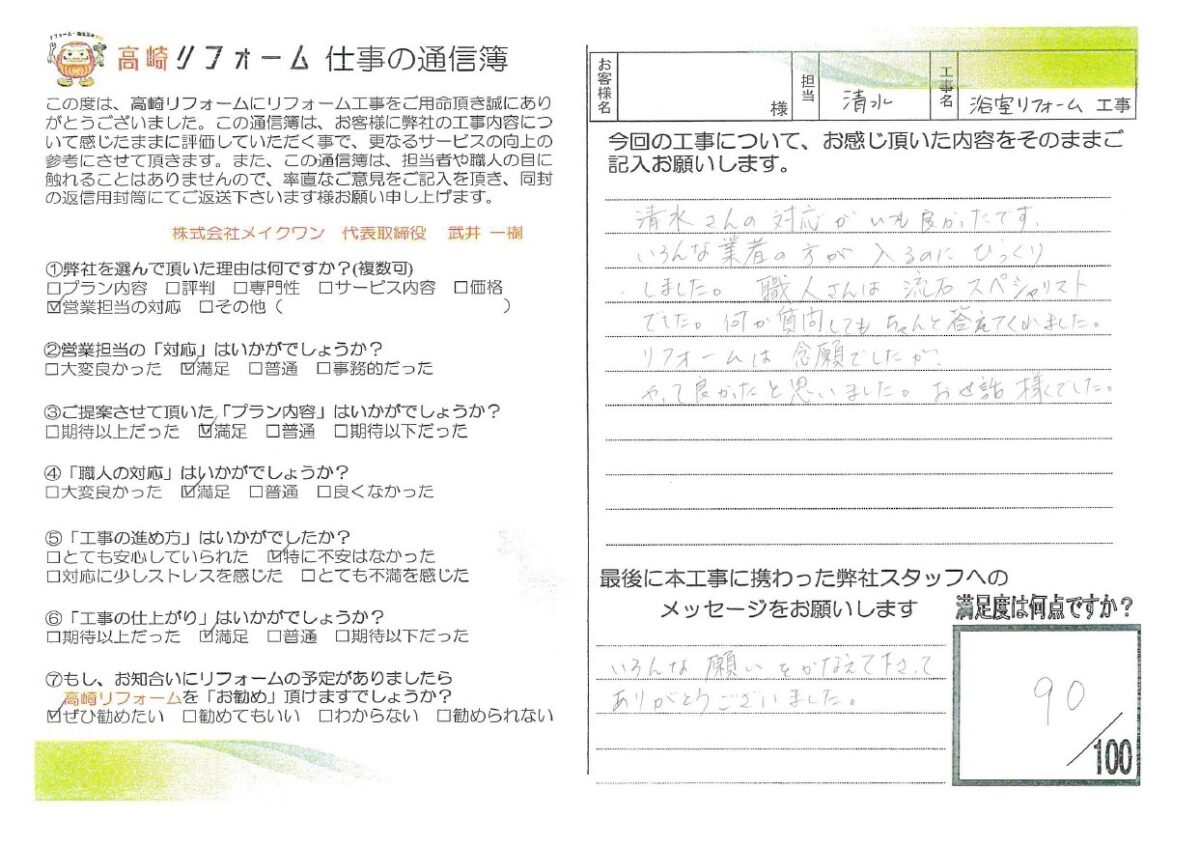 高崎リフォーム 仕事の通信簿
この度は、高崎リフォームにリフォーム工事をご用命頂き誠にあり
がとうございました。この通信簿は、お客様に弊社の工事内容につ
いて感じたままに評価していただく事で、更なるサービスの向上の
参考にさせて頂きます。また、この通信簿は、担当者や職人の目に
触れることはありませんので、率直なご意見をご記入を頂き、同封
の返信用封筒にてご返送下さいます様お願い申し上げます。
株式会社メイクワン 代表取締役 武井 一樹
①弊社を選んで頂いた理由は何ですか?(複数可)
□プラン内容 □評判 □専門性 □サービス内容 □価格
☑営業担当の対応 □その他( )
②営業担当の「対応」はいかがでしょうか?
□大変良かった ☑満足 □普通 □事務的だった
③ご提案させて頂いた「プラン内容」はいかがでしょうか?
□期待以上だった ☑満足 □普通 □期待以下だった
④「職人の対応」はいかがでしょうか?
□大変良かった ☑満足 □普通 □良くなかった
⑤「工事の進め方」はいかがでしたか?
□とても安心していられた ☑特に不安はなかった
□対応に少しストレスを感じた □とても不満を感じた
⑥「工事の仕上がり」はいかがでしょうか?
□期待以上だった ☑満足 □普通 □期待以下だった
⑦もし、お知合いにリフォームの予定がありましたら
高崎リフォームを「お勧め」頂けますでしょうか?
☑ぜひ勧めたい □勧めてもいい □わからない □勧められない
お客様名 様 担当 清水 工事名 浴室リフォーム 工事
今回の工事について、お感じ頂いた内容をそのままご
記入お願いします。
清水さんの対応がいも良かったです.
いろんな業者の方が入るのにびっくり
しました。 職人さんは流石スペシャリスト
でした。何か質問してもちゃんと答えてくれました。
リフォームは念願でしたが.
やって良かったと思いました。お世話様でした。
最後に本工事に携わった弊社スタッフへの
メッセージをお願いします
いろんな願いをかなえて下さって
ありがとうございました。
満足度は何点ですか?
90
/100